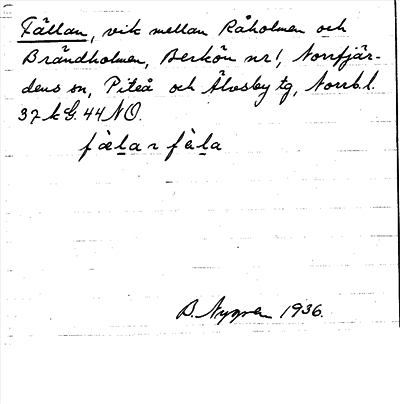 Fällan, vik mellan Råholmen och
Brändholmen, Berkön nr 1, Norrfjär-
dens sn, Piteå och Älvsby tg, Norrb.l.
37 k G. 44 NO.
fæ̀l̲a ~ fæ̀.l̲a
B. Nygren 1936.